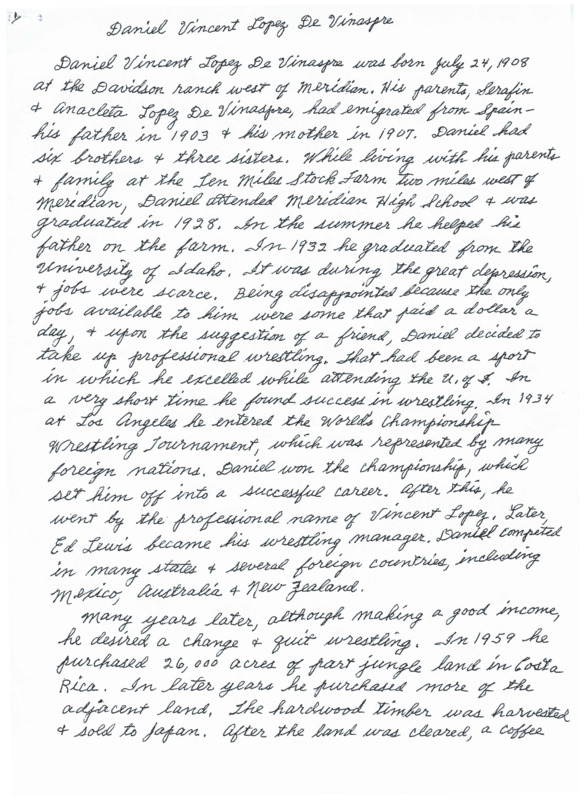 Daniel Vincent Lopez De Vinaspre
Daniel Vincent Lopez De Vinaspre was born July 24, 1908
at the Davidson ranch west of Meridian. His parents, Serafin
& Anacleta Lopez De Vinaspre, had emigrated from Spain –
his father in 1903 & his mother in 1907. Daniel had
six brothers & three sisters. While living with his parents
& family at the Ten Miles Stock Farm two miles west of
Meridian, Daniel attended Meridian High School & was
graduated in 1928. In the summer he helped his
father on the farm. In 1932 he graduated from the
University of Idaho. It was during the great depression,
& jobs were scarce. Being disappointed because the only
jobs available to him were some that paid a dollar a
day, & upon the suggestion of a friend, Daniel decided to
take up professional wrestling. That had been a sport
in which he excelled while attending the U. of I. In
a very short time he found success in wrestling. In 1934
at Los Angeles he entered the World's Championship
Wrestling Tournament, which was represented by many
foreign nations. Daniel won the championship, which
set him off into a successful career. After this, he
went by the professional name of Vincent Lopez. Later,
Ed Lewis became his wrestling manager. Daniel competed
in many states & several foreign countries, including
Mexico, Australia & New Zealand.
Many years later, although making a good income,
he desired a change & quit wrestling. In 1959 he
purchased 26,000 acres of part jungle land in Costa
Rica. In later years he purchased more of the
adjacent land. The hardwood timber was harvested
& sold to Japan. After the land was cleared, a coffee